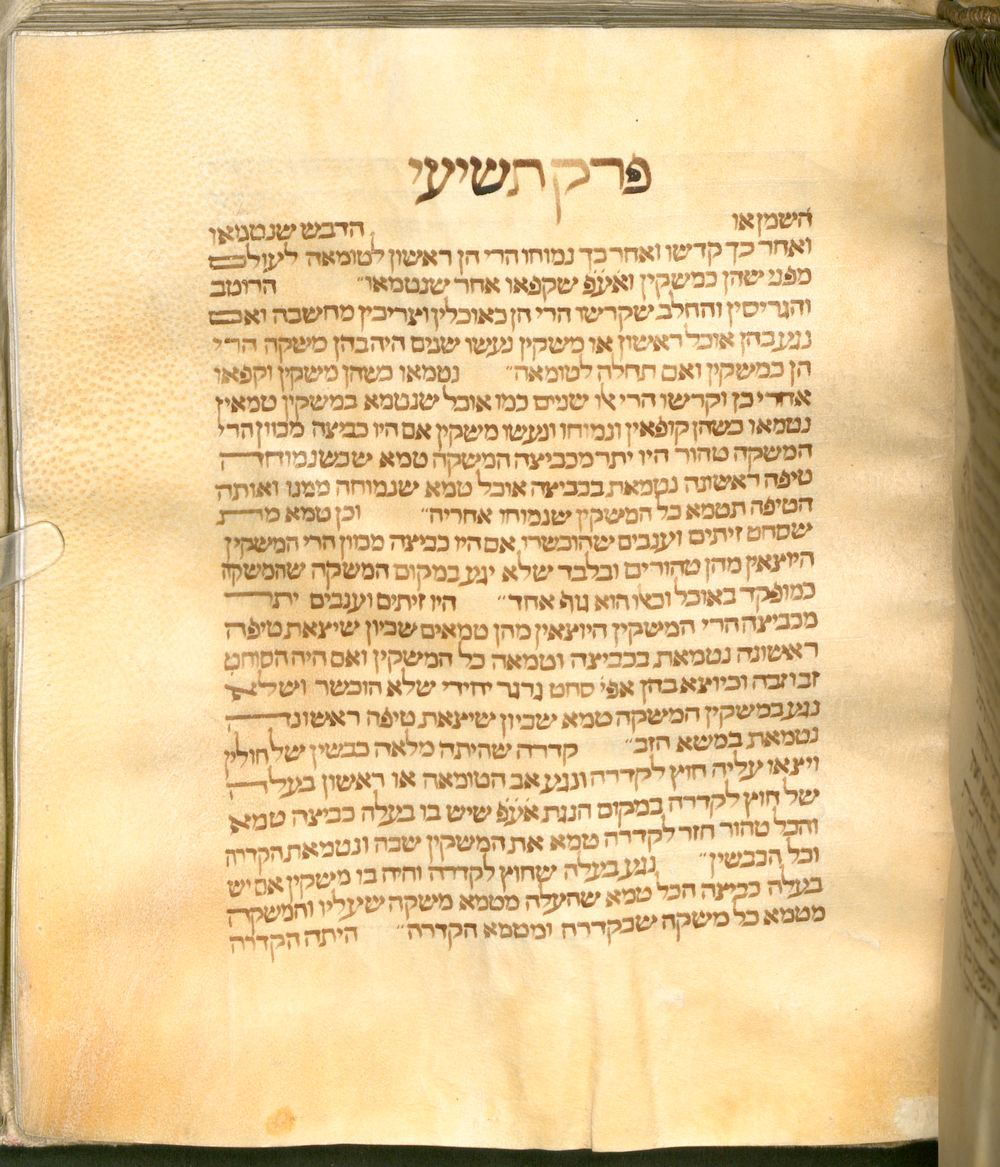 פרק תשיעי
השמן או הדבש שנטמאו
ואחר כך קדישו ואחר כך נמוחו הרי הן ראשון לטומאה לעולם
מפני שהן כמשקין ואע״פ שקפאו אחר שנטמאו״ הרוטב
והגריסין והחלב שקרשו הרי הן כאוכלין וצריכין מחשבה ואם
נגע בהן אוכל ראשון או משקין נעשו שנים היה בהן משקה הרי
הן כמשקין ואם תחלה לטומאה״ נטמאו כשהן משקין וקפאו
אחרי כן וקרשו הרי אלו שניים כמו אוכל שנטמא במשקין טמאין
נטמאו כשהן קופאין ונמוחו ונעשו משקין אם היו כביצה מכוון הרי
המשקה טהור היו יתר מכביצה המשקה טמא שכשנמוחה
טיפה ראשונה נטמאת בכביצה אוכל טמא שנמוחה ממנו ואותה
הטיפה תטמא כל המשקין שנמוחו אחריה״ וכן טמא מת
שסחט זיתים וענבים שהוכשרו אם היו כביצה מכוון הרי המשקין
היוצאין מהן טהורים ובלבד שלא יגע במקום המשקה שהמשקה
כמופקד באוכל וכאלו הוא גוף אחד״ היו זיתים וענבים יתר
מכביצה הרי המשקין היוצאין מהן טמאים שכיון שיצאת טיפה
ראשונה נטמאת בכביצה וטמאה כל המשקין ואם היה הסוחט
זב וזבה וכיוצא בהן אפי׳ סחט גרגר יחידי שלא הוכשר ושלא
נגע במשקין המשקה טמא שכיון שיצאת טיפה ראשונה
נטמאת במשא הזב״ קדרה שהיתה מלאה כבשין של חולין
ויצאו עליה חוץ לקדרה ונגע אב הטומאה או ראשון בעלה
של חוץ לקדרה במקום הנגת אע״פ שיש בו בעלה כביצה טמא
והכל טהור חזר לקדרה טמא את המשקין שבה ונטמאת הקדרה
וכל הכבשין״ נגע בעלה שחוץ לקדרה והיה בו משקין אם יש
בעלה כביצה הכל טמא שהעלה מטמא משקה שעליו והמשקה
מטמא כל משקה שבקדרה ומטמא הקדרה״ היתה הקדרה